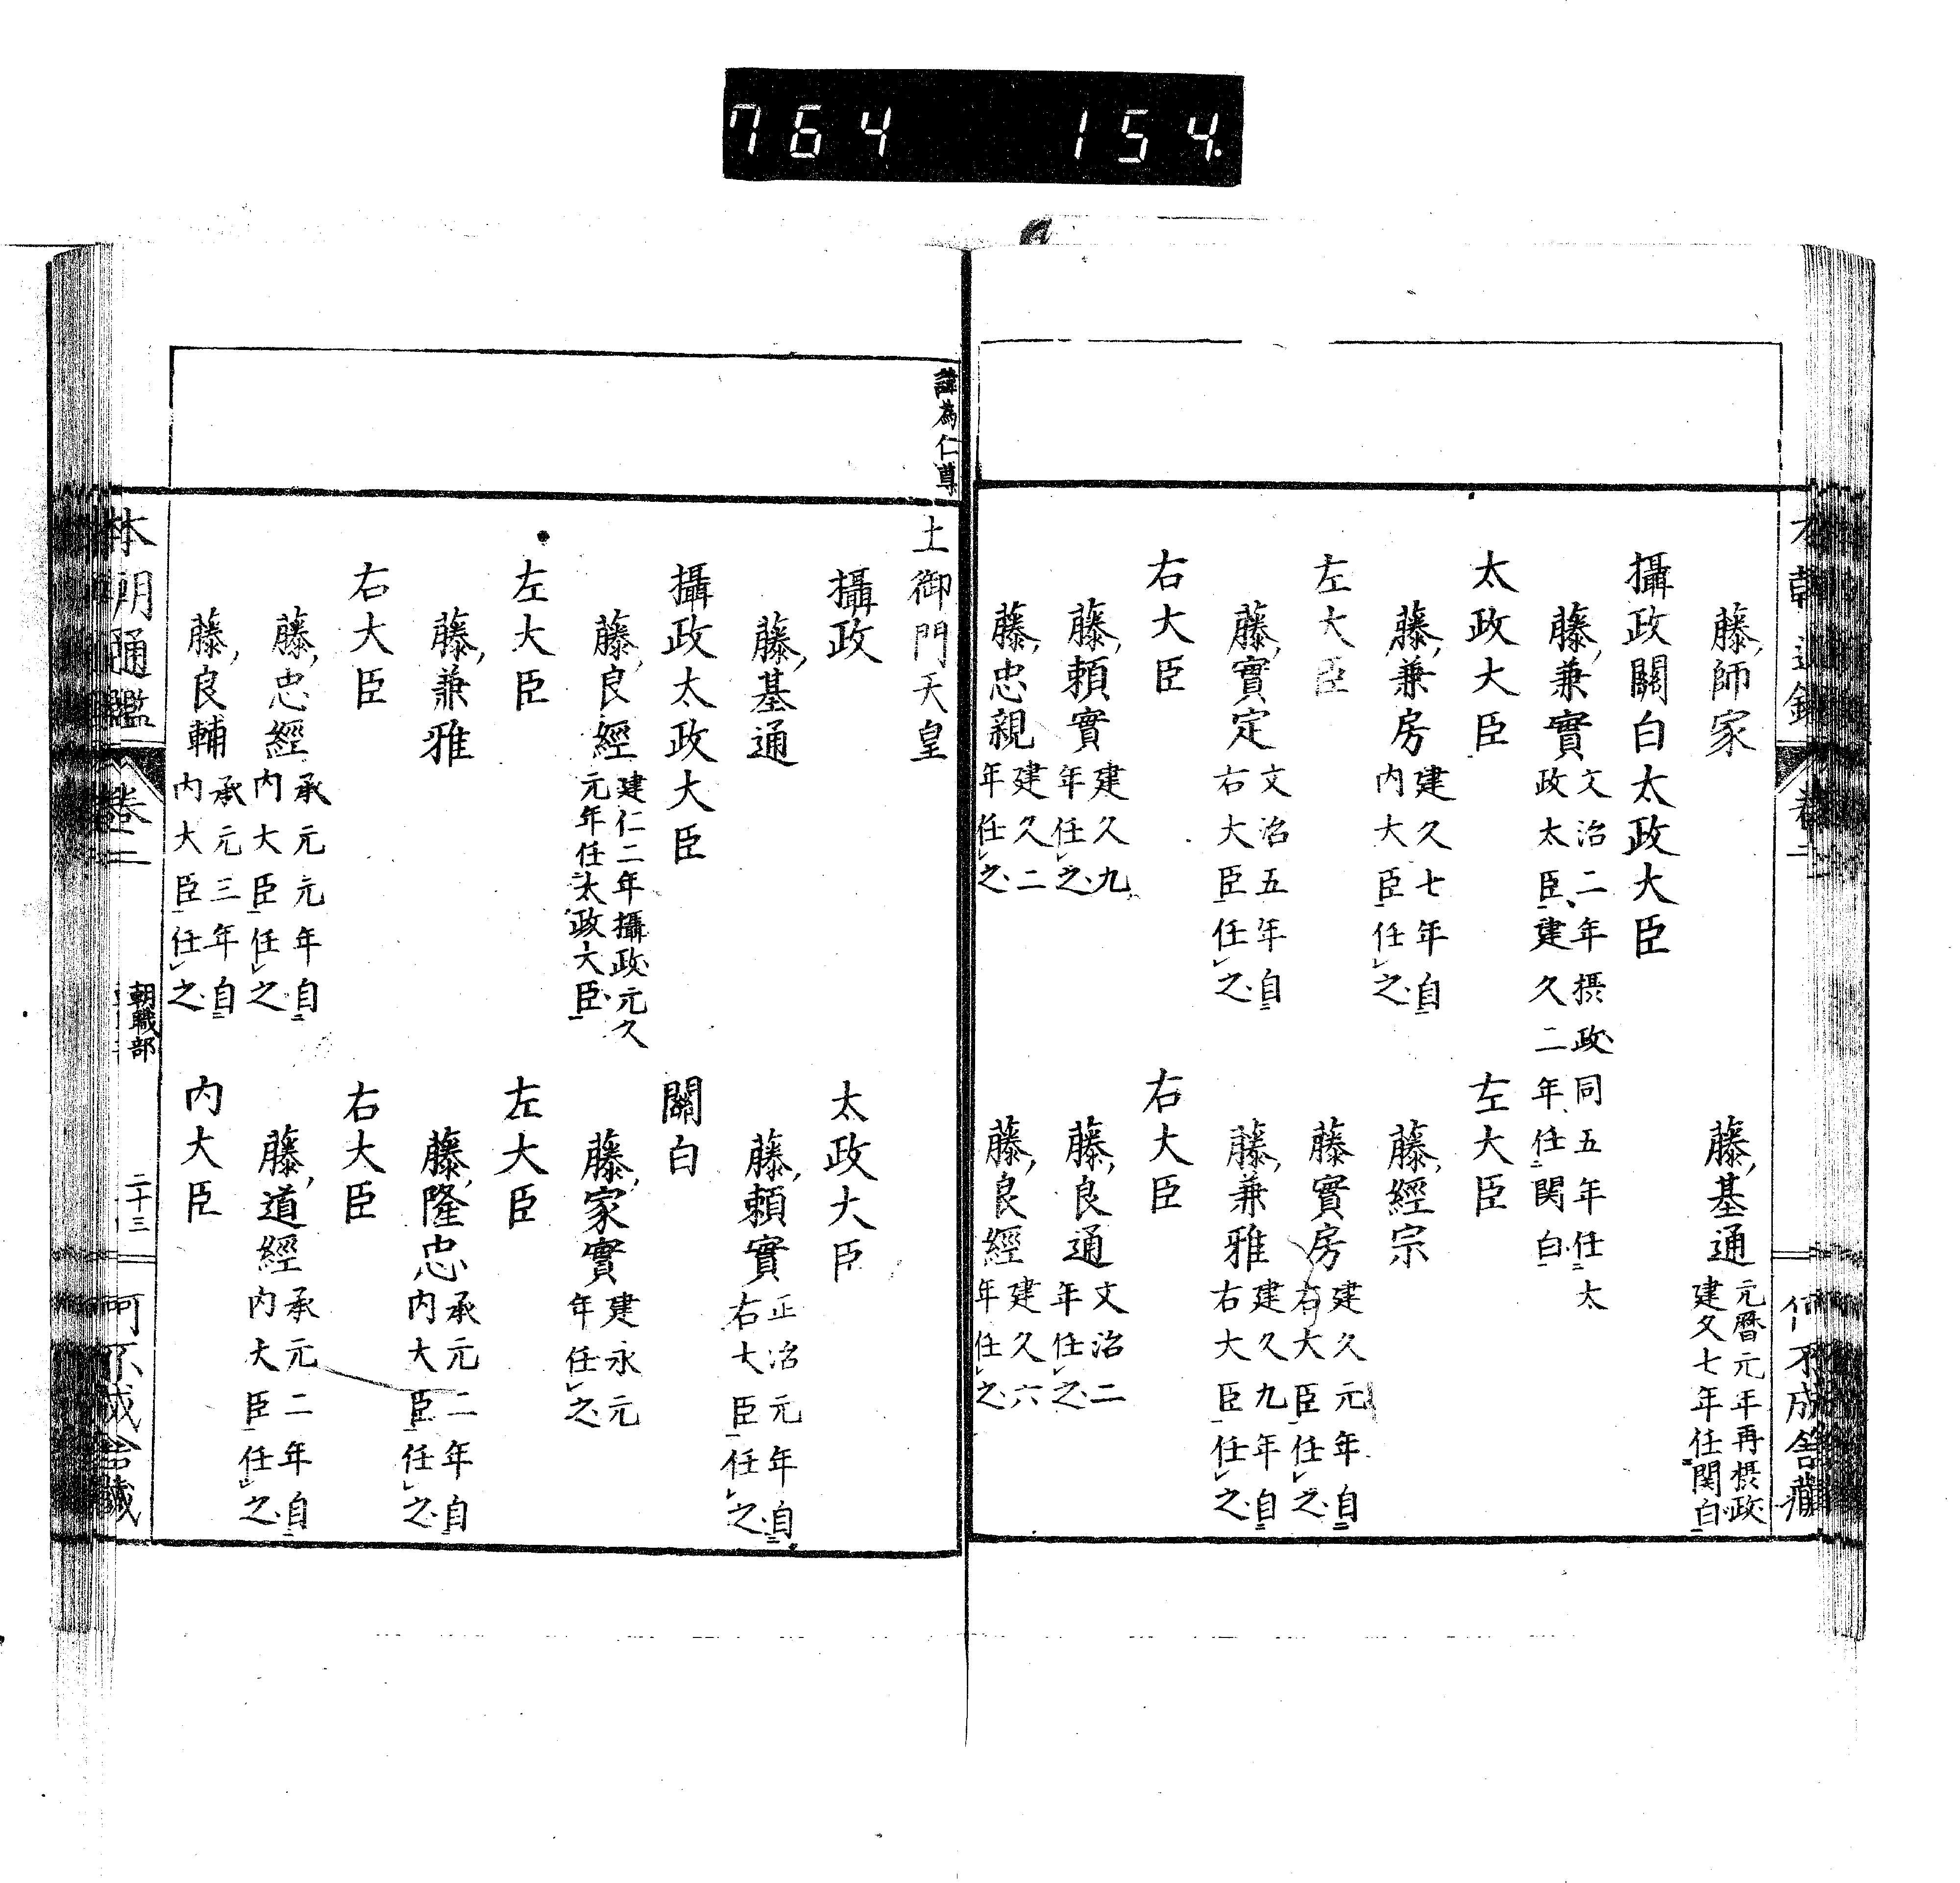 764 154
藤師家
藤基通 元暦元年再摂政建久七年任関白
攝政關白太政大臣
藤兼實 文治二年摂政同五年任太政太臣建久二年任関白
太政大臣
左大臣
藤兼房 建久七年自内大臣任之
藤經宗
左大臣
藤實房 建久元年自右大臣任之
藤實定 文治五年自右大臣任之
藤兼雅 建久九年自右大臣任之
右大臣
右大臣
藤頼實 建久九年任之
藤良通 文治二年任之
藤忠親 建久二年任之
藤良經 建久六年任之
諱為仁尊
土御門天皇
攝政
太政大臣
藤基通
藤頼實 正治元年自右大臣任之
攝政太政大臣
關白
藤良經 建仁二年攝政元久元年任太政大臣
藤家實 建永元年任之
左大臣
左大臣
藤兼雅
藤隆忠 承元二年自内大臣任之
右大臣
右大臣
藤忠經 承元元年自内大臣任之
藤道經 承元二年自内大臣任之
藤良輔 承元三年自内大臣任之
内大臣
本朝通鑑 卷二 朝職部 二十三